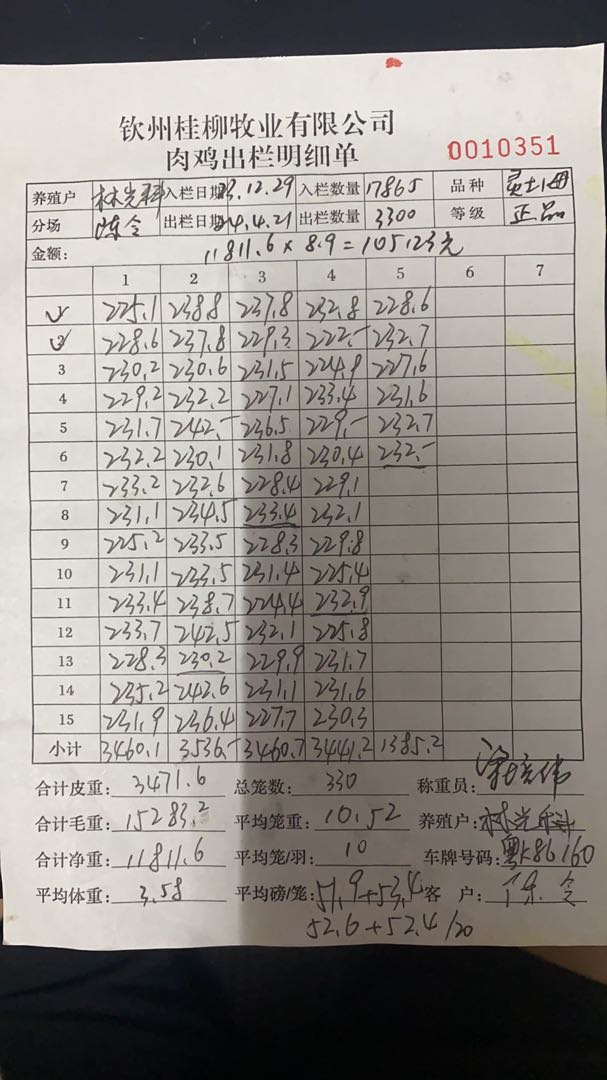 钦州桂柳牧业有限公司
肉鸡出栏明细单 0010351
养殖户 林光科 入栏日期 23.12.29 入栏数量 17865 品种 灵土1母
分场 陈令 出栏日期 24.4.21 出栏数量 3300 等级 正品
金额: 11811.6 × 8.9 = 105123元
1 2 3 4 5 6 7
1 225.1 238.8 237.8 232.8 228.6
2 228.6 237.8 229.3 222.- 232.7
3 230.2 230.6 231.5 224.9 227.6
4 229.2 232.2 227.1 233.4 231.6
5 231.7 242.- 236.5 229.- 232.7
6 232.2 230.1 231.8 230.4 232.-
7 233.2 232.6 228.4 229.1
8 231.1 234.5 233.4 232.1
9 225.2 233.5 228.3 229.8
10 231.1 233.5 231.4 225.4
11 233.4 238.7 224.4 232.9
12 233.7 242.5 232.1 225.8
13 228.3 230.2 229.9 231.7
14 235.2 242.6 231.1 231.6
15 231.9 236.4 227.7 230.3
小计 3460.1 3536.- 3460.7 3441.2 1385.2
合计皮重: 3471.6 总笼数: 330 称重员:
合计毛重: 15283.2 平均笼重: 10.52 养殖户: 林光科
合计净重: 11811.6 平均笼/羽: 10 车牌号码: 粤K86160
平均体重: 3.58 平均磅/笼: 51.9+53.4 客 户: 陈令
52.6+52.4/20